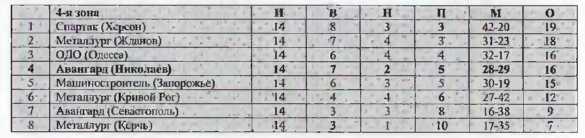 4-я зона И В Н П М О
1 Спартак (Херсон) 14 8 3 3 42-20 19
2 Металлург (Жданов) 14 7 4 3 31-23 18
3 ОДО (Одесса) 14 6 4 4 32-17 16
4 Авангард (Николаев) 14 7 2 5 28-29 16
5 Машиностроитель (Запорожье) 14 6 3 5 30-19 15
6 Металлург (Кривой Рог) 14 4 4 6 27-42 12
7 Авангард (Севастополь) 14 3 3 8 16-38 9
8 Металлург (Керчь) 14 3 1 10 17-35 7